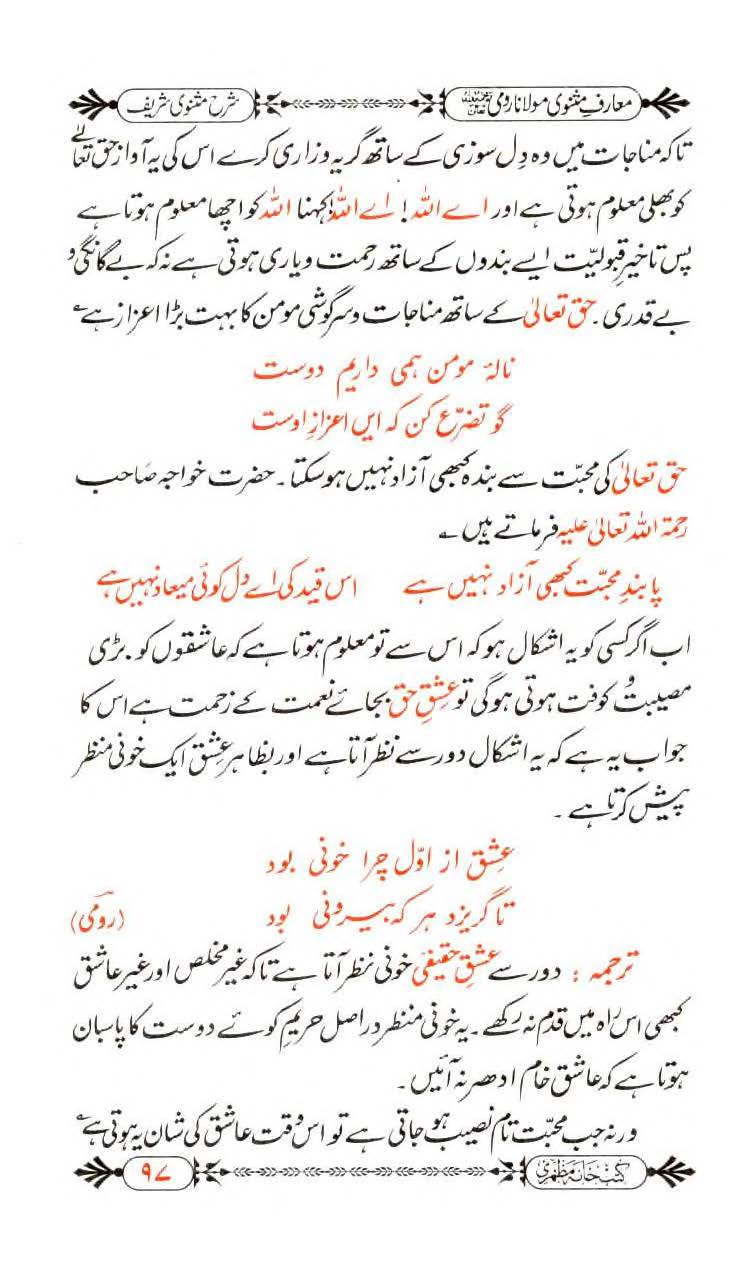 معارفِ مثنوی مولانا رومی رحمۃ اللہ علیہ
شرح مثنوی شریف
تاکہ مناجات میں وہ دِل سوزی کے ساتھ گریہ وزاری کرے اس کی یہ آواز حق تعالیٰ
کو بھلی معلوم ہوتی ہے اور اے اللہ! اے اللہ! کہنا اللہ کو اچھا معلوم ہوتا ہے
پس تاخیرِ قبولیّت ایسے بندوں کے ساتھ رحمت ویاری ہوتی ہے نہ کہ بے گانگی و
بے قدری۔ حق تعالیٰ کے ساتھ مناجات وسرگوشی مومن کا بہت بڑا اعزاز ہے ؎
نالۂ مومن ہمی داریم دوست
گو تضرّع کن کہ ایں اعزازِ اوست
حق تعالیٰ کی محبّت سے بندہ کبھی آزاد نہیں ہوسکتا۔ حضرت خواجہ صاحب
رحمۃ اللہ تعالیٰ علیہ فرماتے ہیں ؎
پابندِ محبّت کبھی آزاد نہیں ہے اس قید کی اے دل کوئی میعاد نہیں ہے
اب اگر کسی کو یہ اشکال ہو کہ اس سے تو معلوم ہوتا ہے کہ عاشقوں کو بڑی
مصیبت و کوفت ہوتی ہوگی تو عشقِ حق بجائے نعمت کے زحمت ہے اس کا
جواب یہ ہے کہ یہ اشکال دور سے نظر آتا ہے اور بظاہر عشق ایک خونی منظر
پیش کرتا ہے ۔
عشق از اوّل چرا خونی بود
تا گریزد ہر کہ بیرونی بود (رومیؒ)
ترجمہ : دور سے عشقِ حقیقی خونی نظر آتا ہے تاکہ غیر مخلص اور غیر عاشق
کبھی اس راہ میں قدم نہ رکھے۔ یہ خونی منظر دراصل حریمِ کوئے دوست کا پاسبان
ہوتا ہے کہ عاشق خام ادھر نہ آئیں۔
ورنہ جب محبّت تام نصیب ہو جاتی ہے تو اس وقت عاشق کی شان یہ ہوتی ہے ؎
کتب خانہ مظہری
۹۷